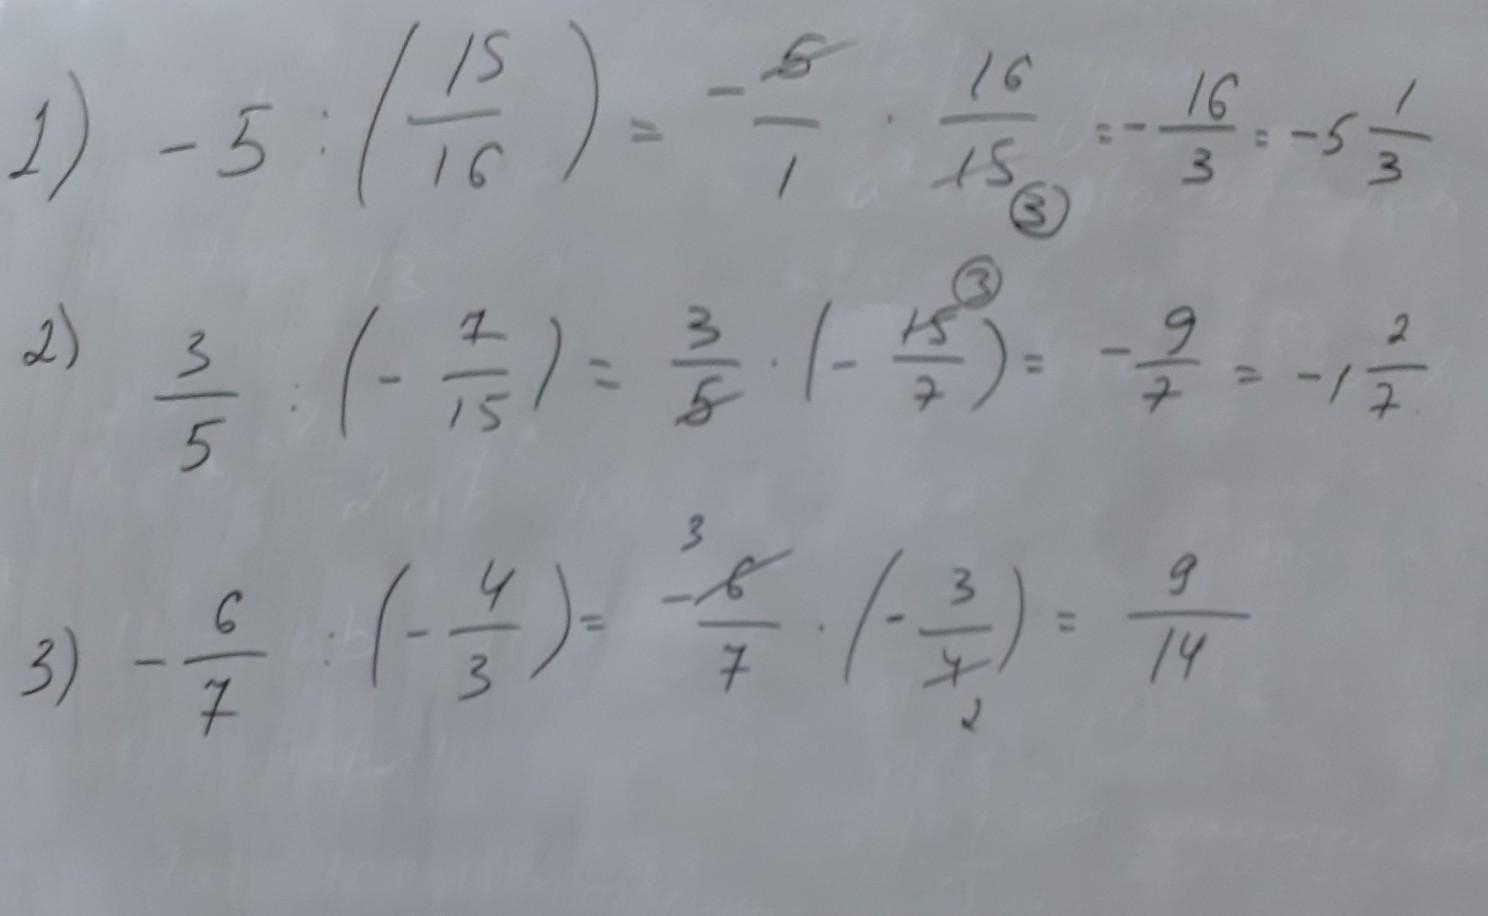 1) -5 : (15/16) = -5/1 · 16/15 (3) = -16/3 = -5 1/3
2) 3/5 : (-7/15) = 3/5 · (-15/7) (3) = -9/7 = -1 2/7
3) -6/7 : (-4/3) = 3 -6/7 · (-3/4) 2 = 9/14